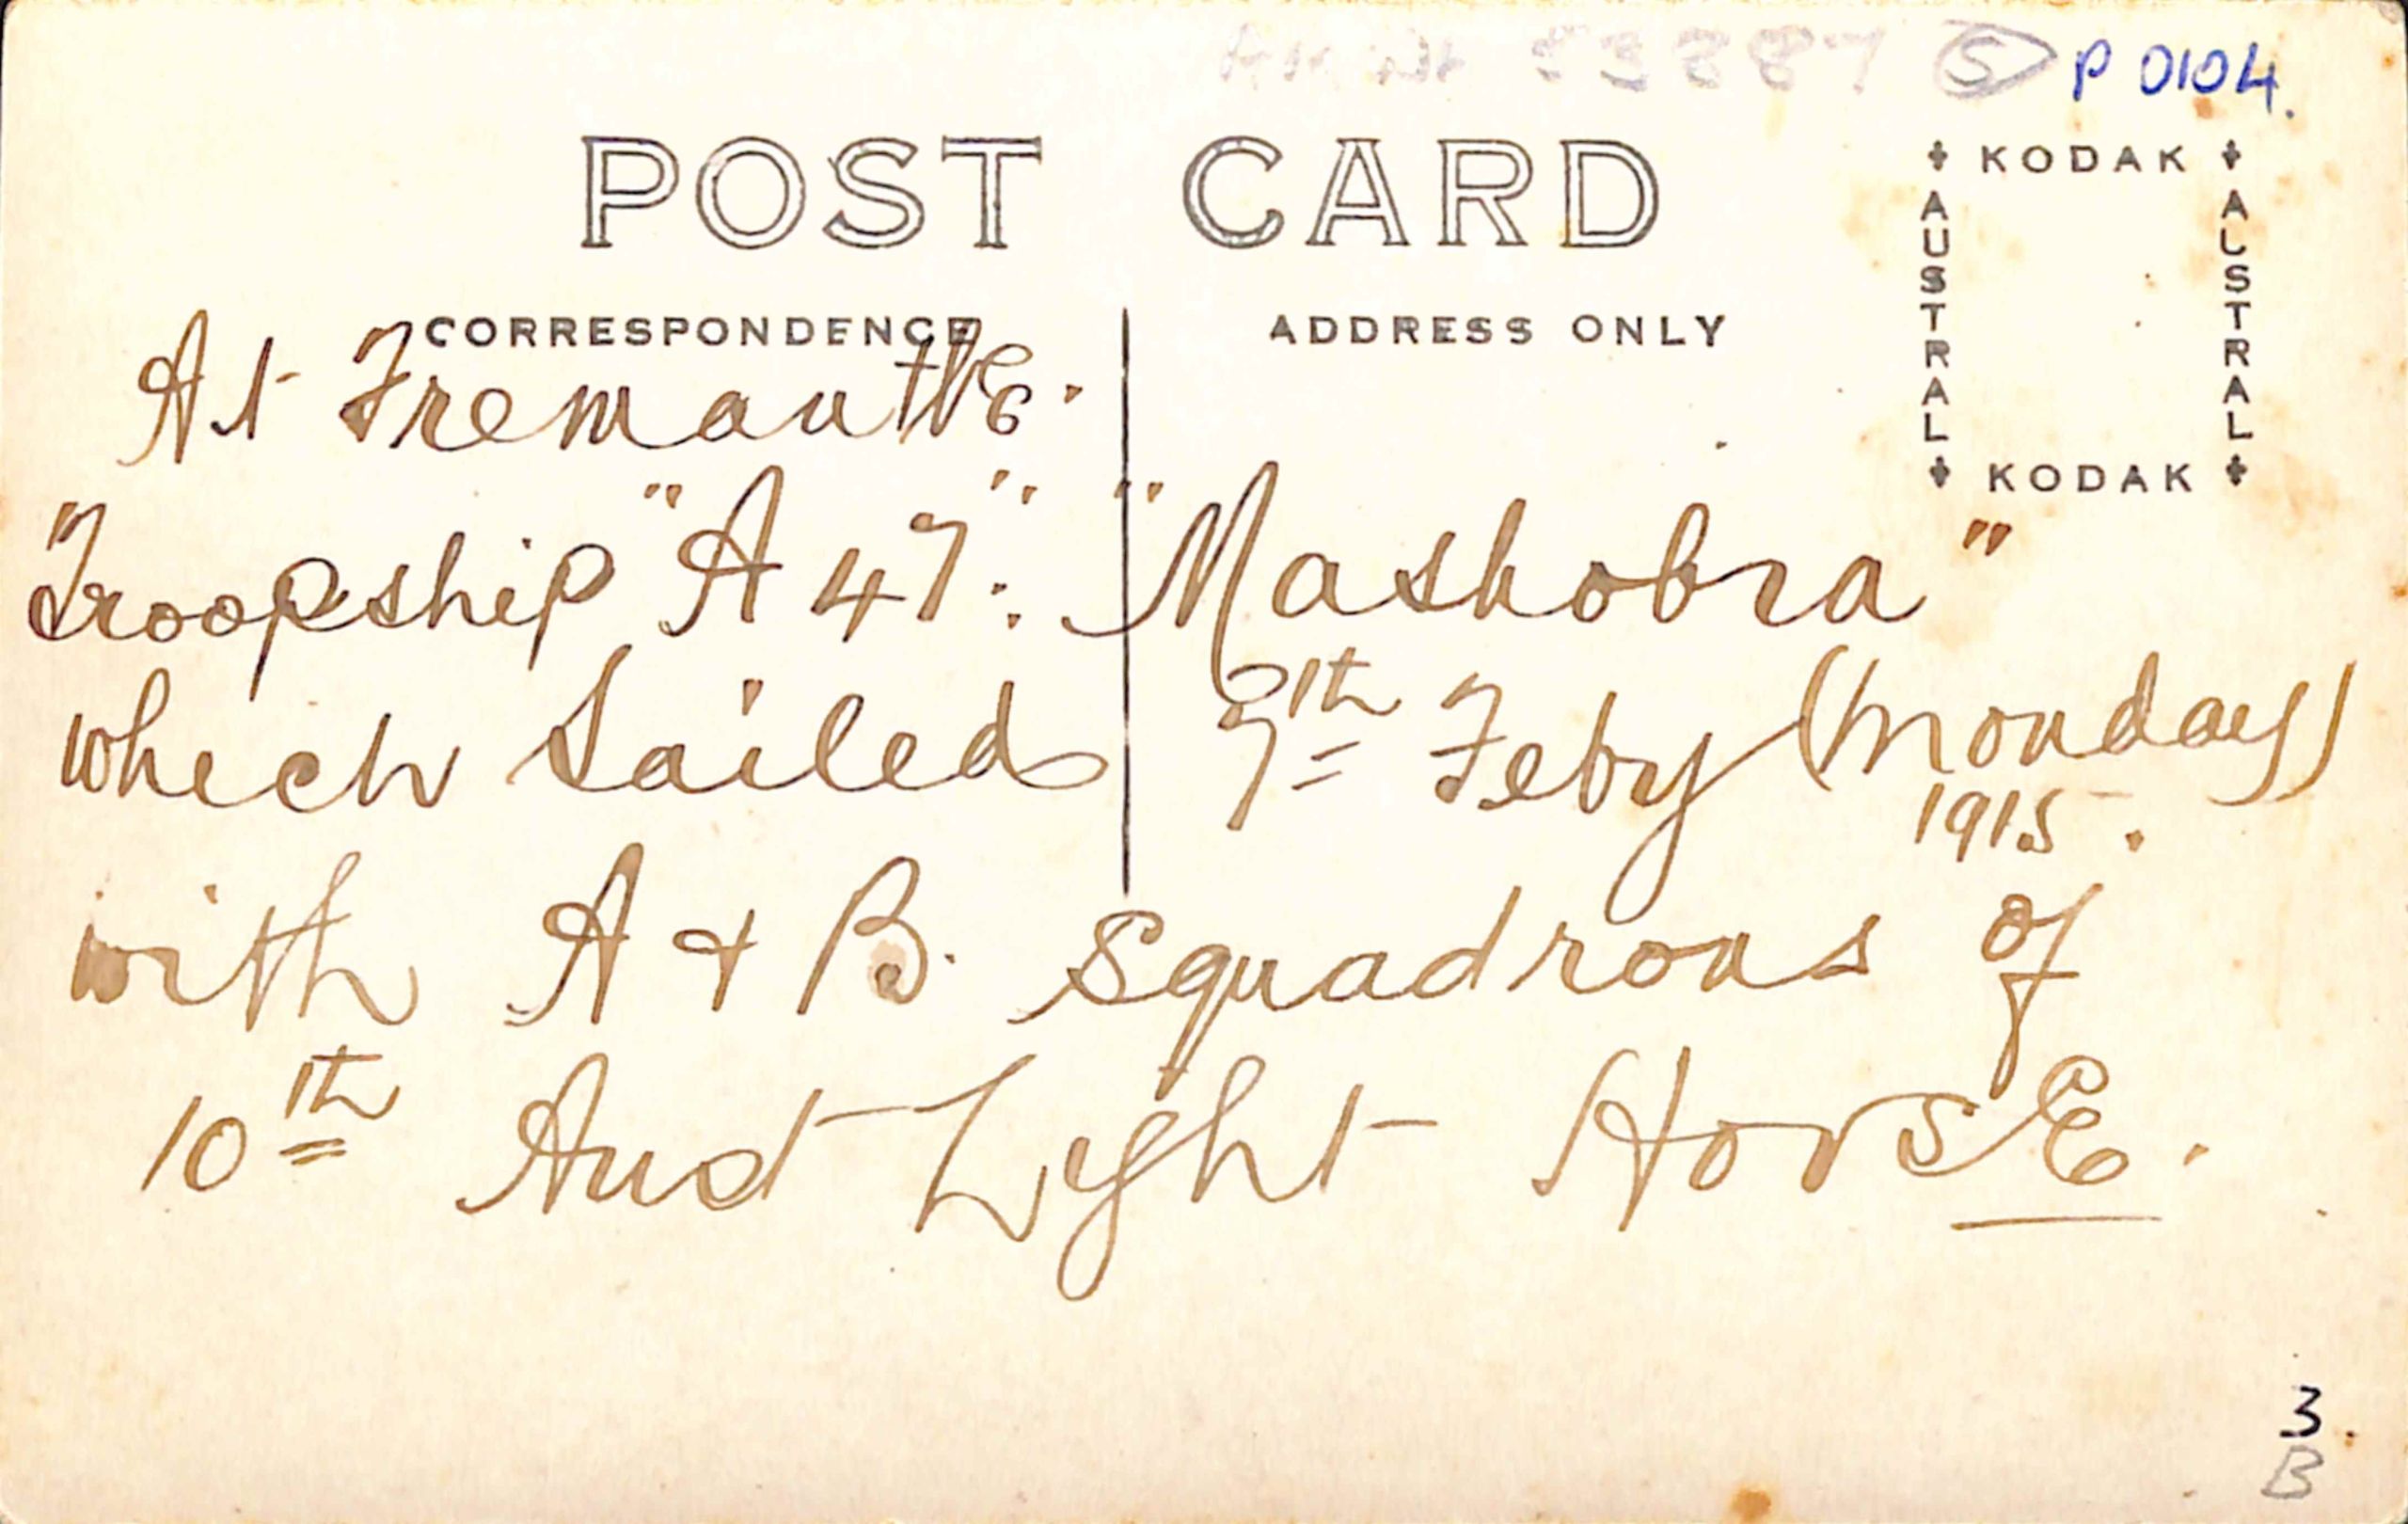 P 0104.
POST CARD
KODAK
AUSTRAL
AUSTRAL
KODAK
CORRESPONDENCE
ADDRESS ONLY
At Fremantle.
Troopship "A 47". "Mashobra"
which Sailed 7th Feby (Monday)
1915.
with A + B. Squadrons of
10th Aust Light Horse.
3
B